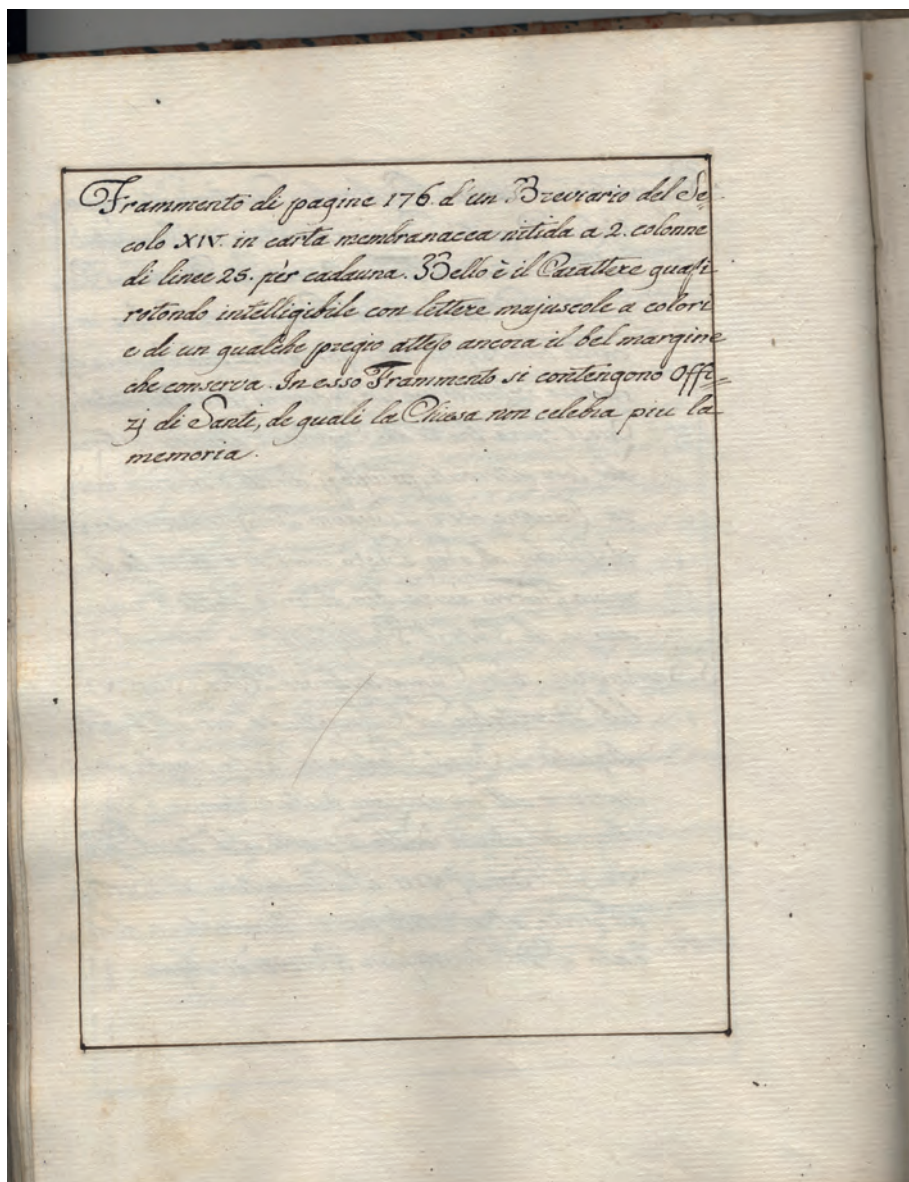 Frammento di pagine 176. d'un Breviario del Se-
colo XIV. in carta membranacea nitida a 2. colonne
di linee 25. per cadauna. Bello è il Carattere quasi
rotondo intelligibile con lettere majuscole a colori
e di un qualche pregio atteso ancora il bel margine
che conserva. In esso Frammento si contengono Offi=
zj di Santi, de quali la Chiesa non celebra piu la
memoria.